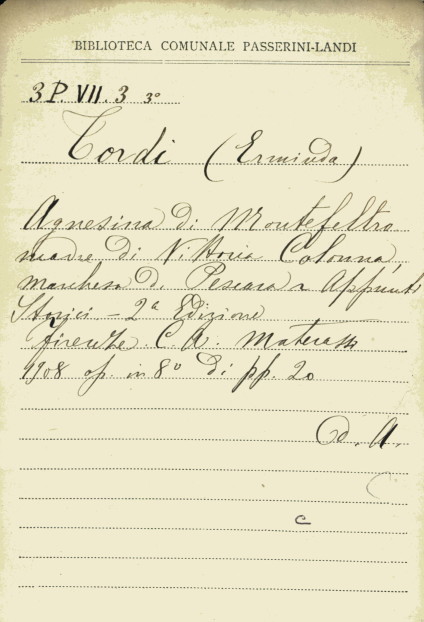 BIBLIOTECA COMUNALE PASSERINI-LANDI
3 P. VII. 3 3°
Tordi (Erminda)
Agnesina di Montefeltro
madre di Vittoria Colonna,
marchesa di Pescara Appunti
Storici - 2ª Edizione
firenze C. A. Materassi
1908 op. in 8° di pp. 20
D. A.
c